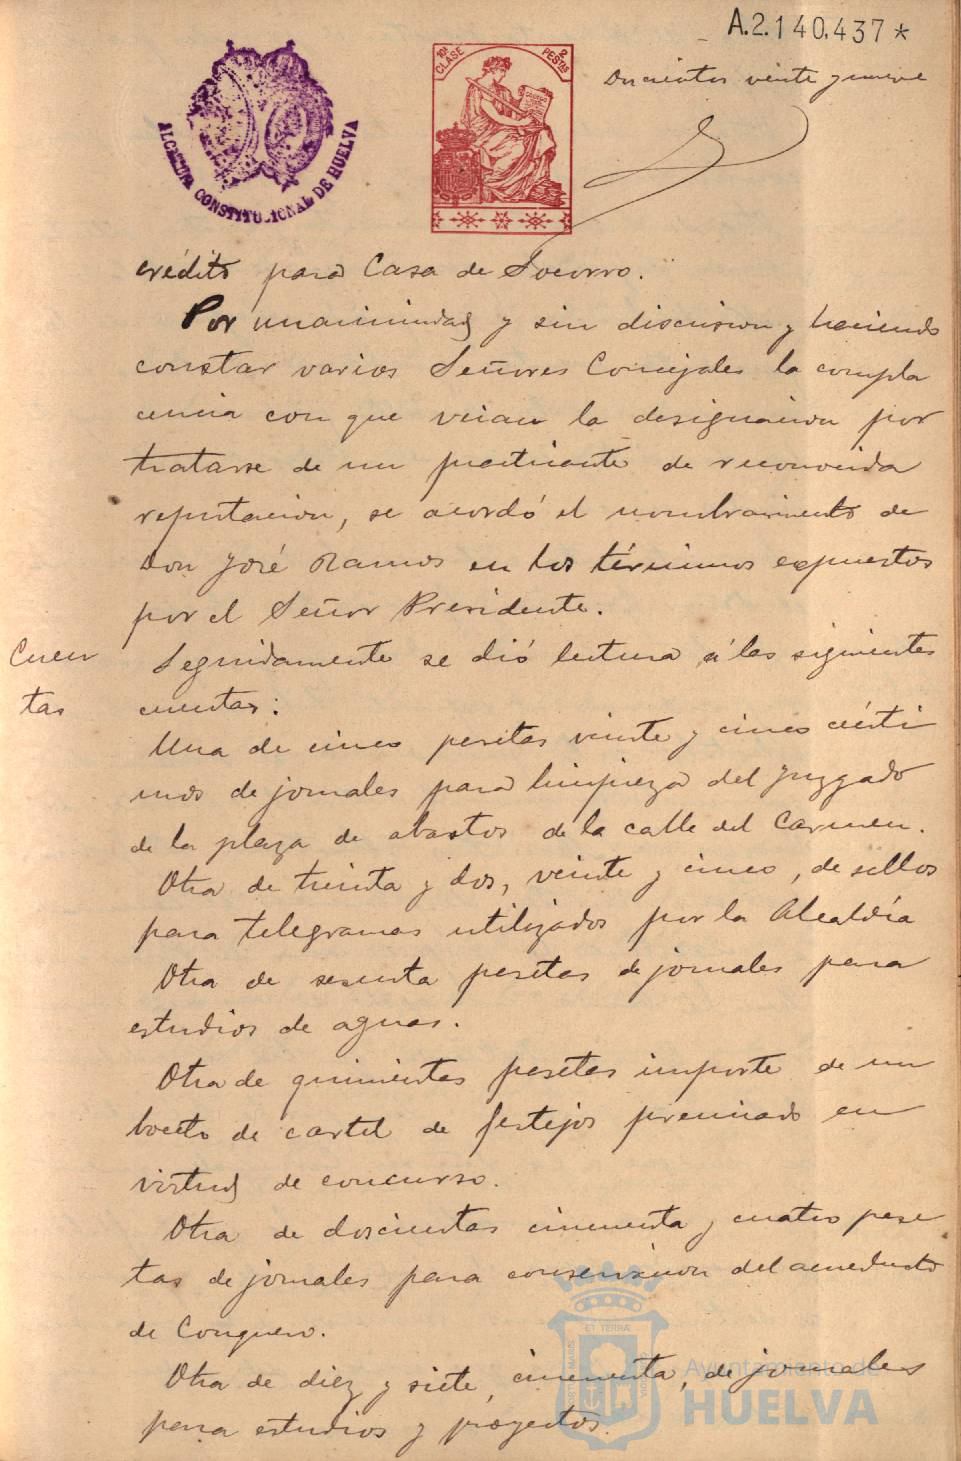 A.2.140.437*
10ª CLASE
2 PESTAS
Duscientos veinte y nueve
ALCALDIA CONSTITUCIONAL DE HUELVA
crédito para Casa de Socorro.
Por unanimidad y sin discusion y haciendo
constar varios Señores Concejales la compla
cencia con que veian la designacion por
tratarse de un practicante de reconocida
reputacion, se acordó el nombramiento de
Don José Ramos en los términos expuestos
por el Señor Presidente.
Cuen
tas
Seguidamente se dió lectura á las siguientes
cuentas:
Una de cinco pesetas veinte y cinco cénti
mos de jornales para limpieza del Juzgado
de la plaza de abastos de la calle del Carmen.
Otra de treinta y dos, veinte y cinco, de sellos
para telegramas utilizados por la Alcaldía
Otra de sesenta pesetas de jornales para
estudios de aguas.
Otra de quinientas pesetas importe de un
boceto de cartel de festejos premiado en
virtud de concurso.
Otra de doscientas cincuenta y cuatro pese
tas de jornales para conservacion del acueducto
de Conquero.
Otra de diez y siete, cincuenta, de jornales
para estudios y proyectos.
Ayuntamiento de
HUELVA